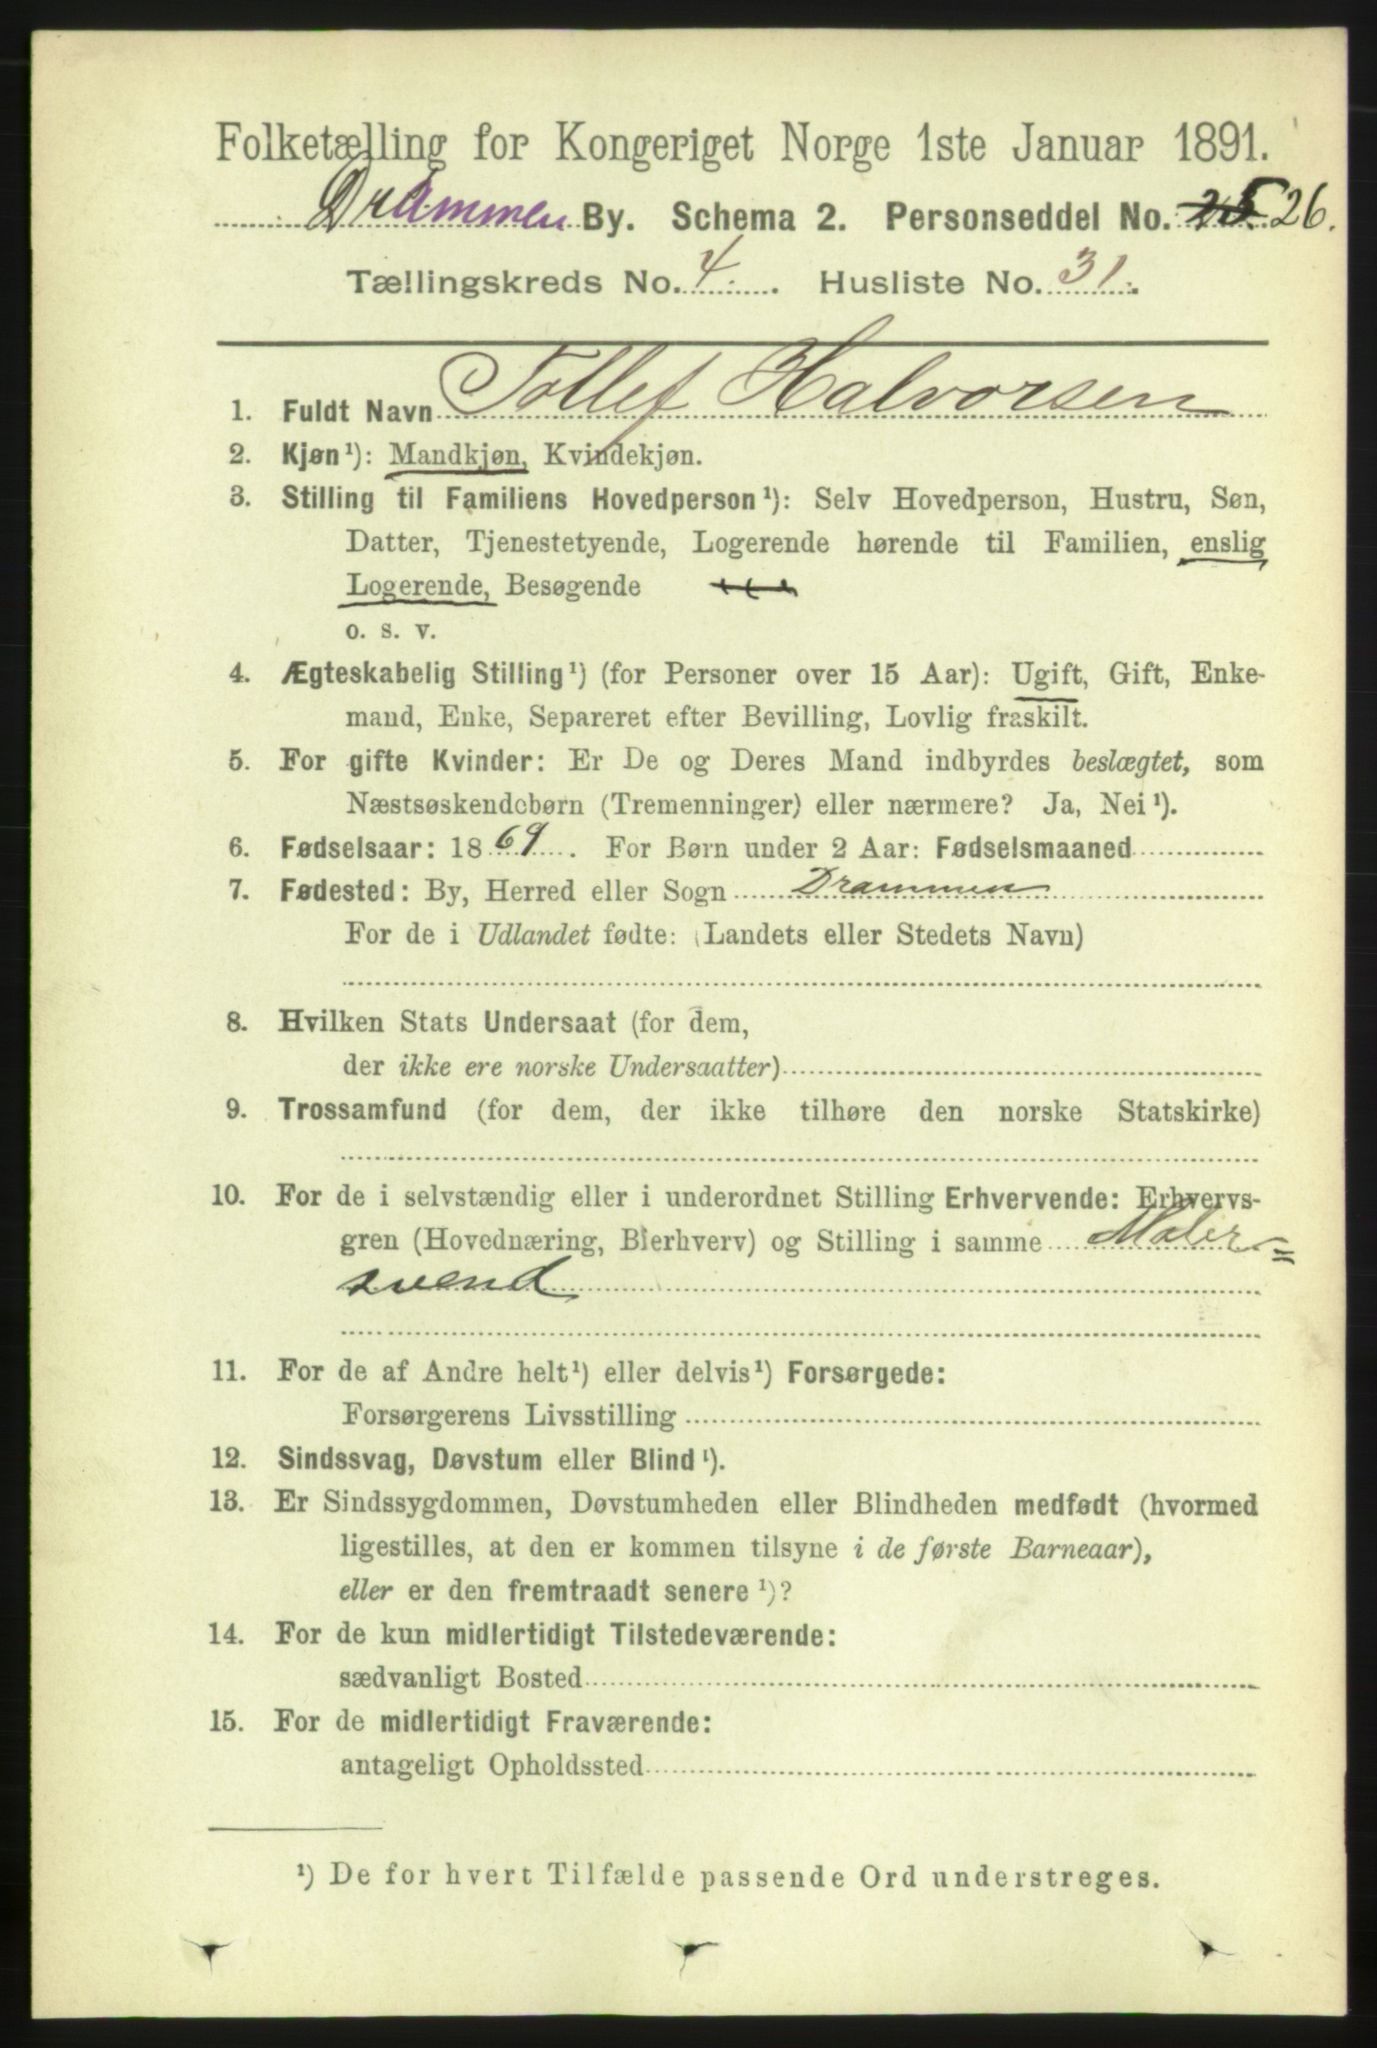 Folketælling for Kongeriget Norge 1ste Januar 1891.
Drammen By. Schema 2. Personseddel No. 25 26.
Tællingskreds No. 4. Husliste No. 31.
1. Fuldt Navn Tollef Halvorsen
2. Kjøn¹): Mandkjøn, Kvindekjøn.
3. Stilling til Familiens Hovedperson¹): Selv Hovedperson, Hustru, Søn,
Datter, Tjenestetyende, Logerende hørende til Familien, enslig
Logerende, Besøgende
o. s. v.
4. Ægteskabelig Stilling¹) (for Personer over 15 Aar): Ugift, Gift, Enke-
mand, Enke, Separeret efter Bevilling, Lovlig fraskilt.
5. For gifte Kvinder: Er De og Deres Mand indbyrdes beslægtet, som
Næstsøskendebørn (Tremenninger) eller nærmere? Ja, Nei¹).
6. Fødselsaar: 1869. For Børn under 2 Aar: Fødselsmaaned
7. Fødested: By, Herred eller Sogn Drammen
For de i Udlandet fødte: (Landets eller Stedets Navn)
8. Hvilken Stats Undersaat (for dem,
der ikke ere norske Undersaatter)
9. Trossamfund (for dem, der ikke tilhøre den norske Statskirke)
10. For de i selvstændig eller i underordnet Stilling Erhvervende: Erhvervs-
gren (Hovednæring, Bierhverv) og Stilling i samme Maler=
svend
11. For de af Andre helt¹) eller delvis¹) Forsørgede:
Forsørgerens Livsstilling
12. Sindssvag, Døvstum eller Blind¹).
13. Er Sindssygdommen, Døvstumheden eller Blindheden medfødt (hvormed
ligestilles, at den er kommen tilsyne i de første Barneaar),
eller er den fremtraadt senere¹)?
14. For de kun midlertidigt Tilstedeværende:
sædvanligt Bosted
15. For de midlertidigt Fraværende:
antageligt Opholdssted
¹) De for hvert Tilfælde passende Ord understreges.